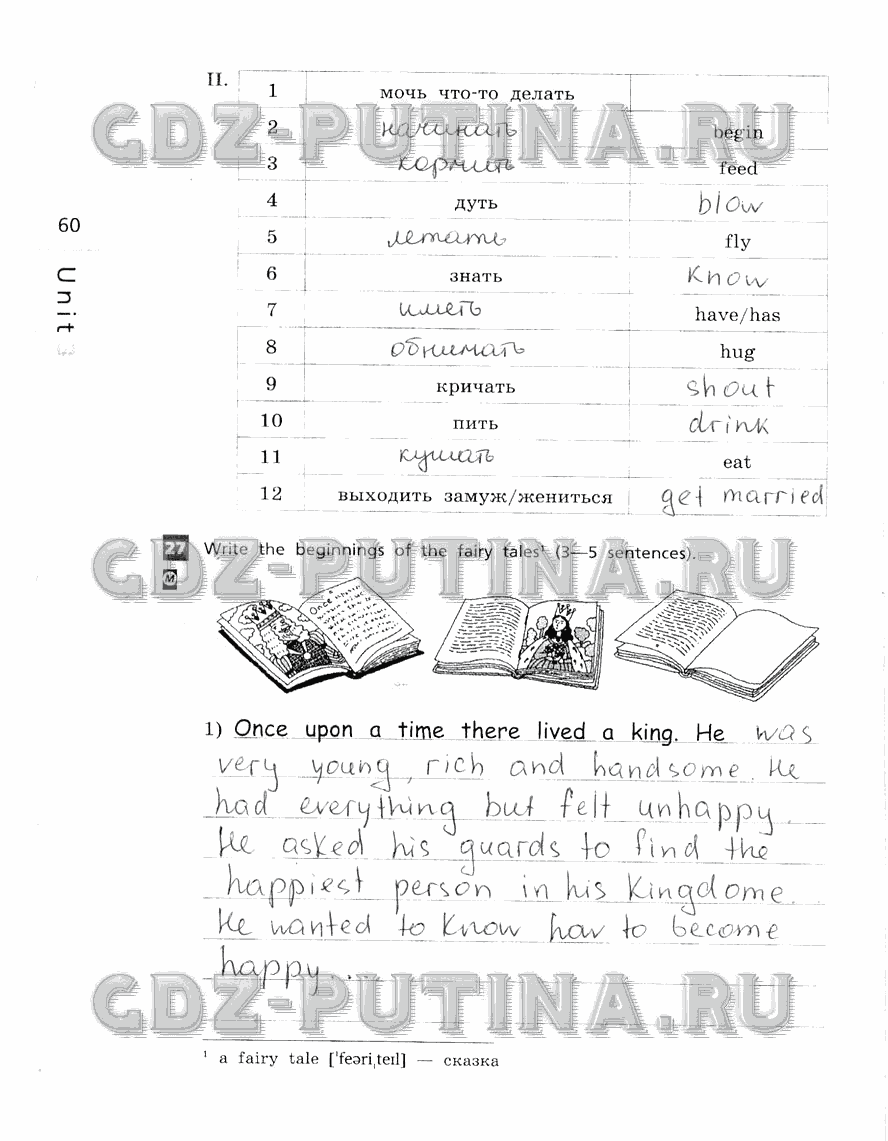 II.
1 мочь что-то делать
GDZ-PUTINA.RU
2 начинать begin
3 кормить feed
4 дуть blow
5 летать fly
6 знать know
7 иметь have/has
8 обнимать hug
9 кричать shout
10 пить drink
11 кушать eat
12 выходить замуж/жениться get married
60
Unit 3
27 Write the beginnings of the fairy tales¹ (3—5 sentences).
GDZ-PUTINA.RU
M
Once upon
1) Once upon a time there lived a king. He was
very young, rich and handsome. He
had everything but felt unhappy.
He asked his guards to find the
happiest person in his kingdome.
He wanted to know how to become
happy...
GDZ-PUTINA.RU
¹ a fairy tale [ˈfeəriˌteɪl] — сказка